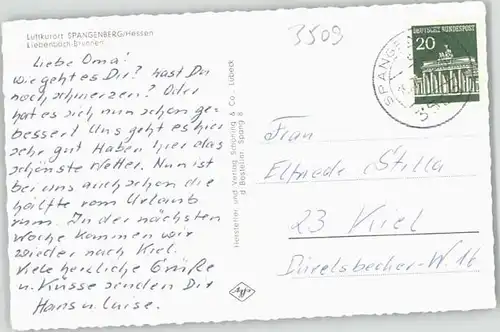 Luftkurort SPANGENBERG/Hessen
Liebenbach-Brunnen
3509
DEUTSCHE BUNDESPOST
20
SPANGE
Liebe Oma!
wie geht es Dir? hast Du
noch schmerzen? Oder
hat es sich nun schon ge-
bessert Uns geht es hier
sehr gut Haben hier das
schönste Wetter. Nun ist
bei uns auch schon die
hälfte vom Urlaub
rum. In der nächsten
Woche kommen wir
wieder nach Kiel.
Viele herzliche Grüße
u. Küsse senden Dir
Hans u. Luise.
Hersteller und Verlag Schöning & Co., Lübeck
d Bestellnr. Spang 8
Frau
Elfriede Stilla
23 Kiel
Düvelsbecker-W. 16
Agfa